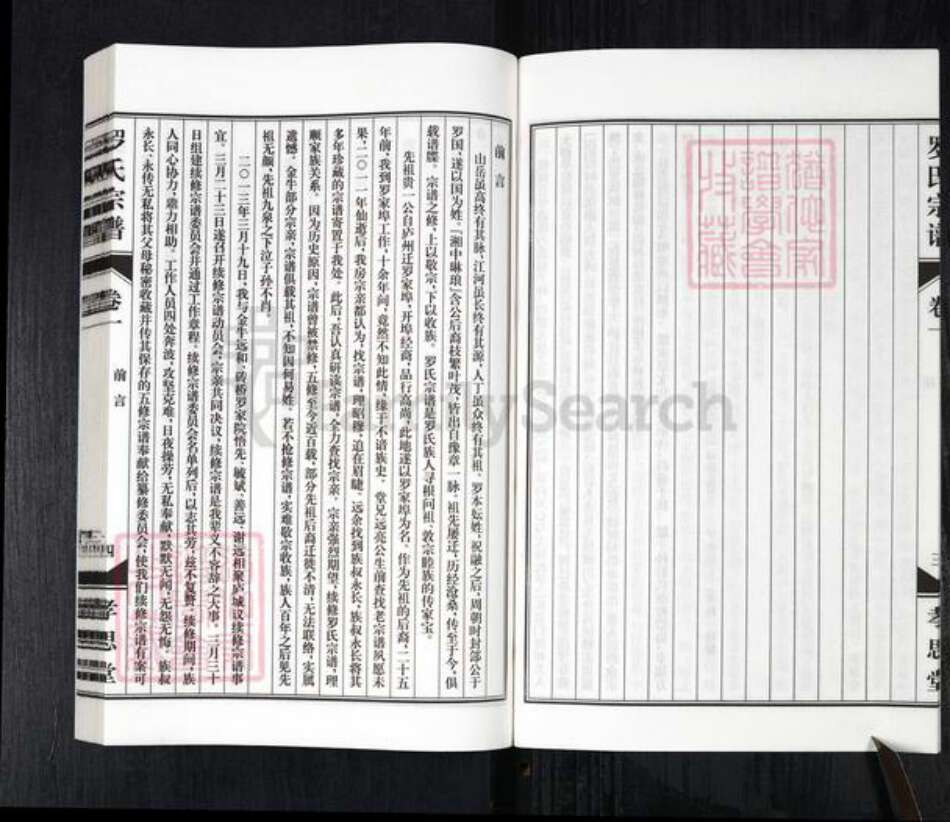 罗氏宗谱
卷一
三
孝思堂
前言
山岳虽高终有其脉，江河虽长终有其源，人丁虽众终有其祖。罗本妘姓，祝融之后，周朝时封部公于
罗国，遂以国为姓。『湘中琳琅』含公后裔枝繁叶茂，皆出自豫章一脉。祖先屡迁，历经沧桑，传至于今，俱
载谱牒。宗谱之修，上以敬宗，下以收族。罗氏宗谱是罗氏族人寻根问祖、敦宗睦族的传家宝。
先祖贵一公自庐州迁罗家埠，开埠经商，品行高尚，此地遂以罗家埠为名。作为先祖的后裔，二十五
年前，我到罗家埠工作，十余年间，竟然不知此情，缘于不谙族史。堂兄远亮公生前查找老宗谱夙愿未
果，二〇一一年仙逝后，我房宗亲都认为，找宗谱，理昭穆，迫在眉睫。远余找到族叔永长，族叔永长将其
多年珍藏的宗谱寄置于我处。此后，吾认真研读宗谱，全力查找宗亲。宗亲强烈期望，续修罗氏宗谱，理
顺家族关系。因为历史原因，宗谱曾被禁修，五修至今近百载，部分先祖后裔迁徙不清，无法联络，实属
遗憾。金牛部分宗亲，宗谱俱载其祖，不知因何易姓。若不抢修宗谱，实难敬宗收族，族人百年之后见先
祖无颜，先祖九泉之下泣子孙不肖。
二〇一三年三月十九日，我与金牛远和、砖桥罗家院悟先、毓斌、善远、谢远相聚庐城议续修宗谱事
宜。三月二十三日遂召开续修宗谱动员会，宗亲共同决议，续修宗谱是我辈义不容辞之大事。三月三十
日组建续修宗谱委员会并通过工作章程。续修宗谱委员会名单列后，以志其劳，兹不复赘。续修期间，族
人同心协力，鼎力相助。工作人员四处奔波，攻坚克难，日夜操劳，无私奉献，默默无闻，无怨无悔。族叔
永长、永传无私将其父母秘密收藏并传其保存的五修宗谱奉献给纂修委员会，使我们续修宗谱有案可
罗氏宗谱
卷一
前言
四
孝思堂
FamilySearch